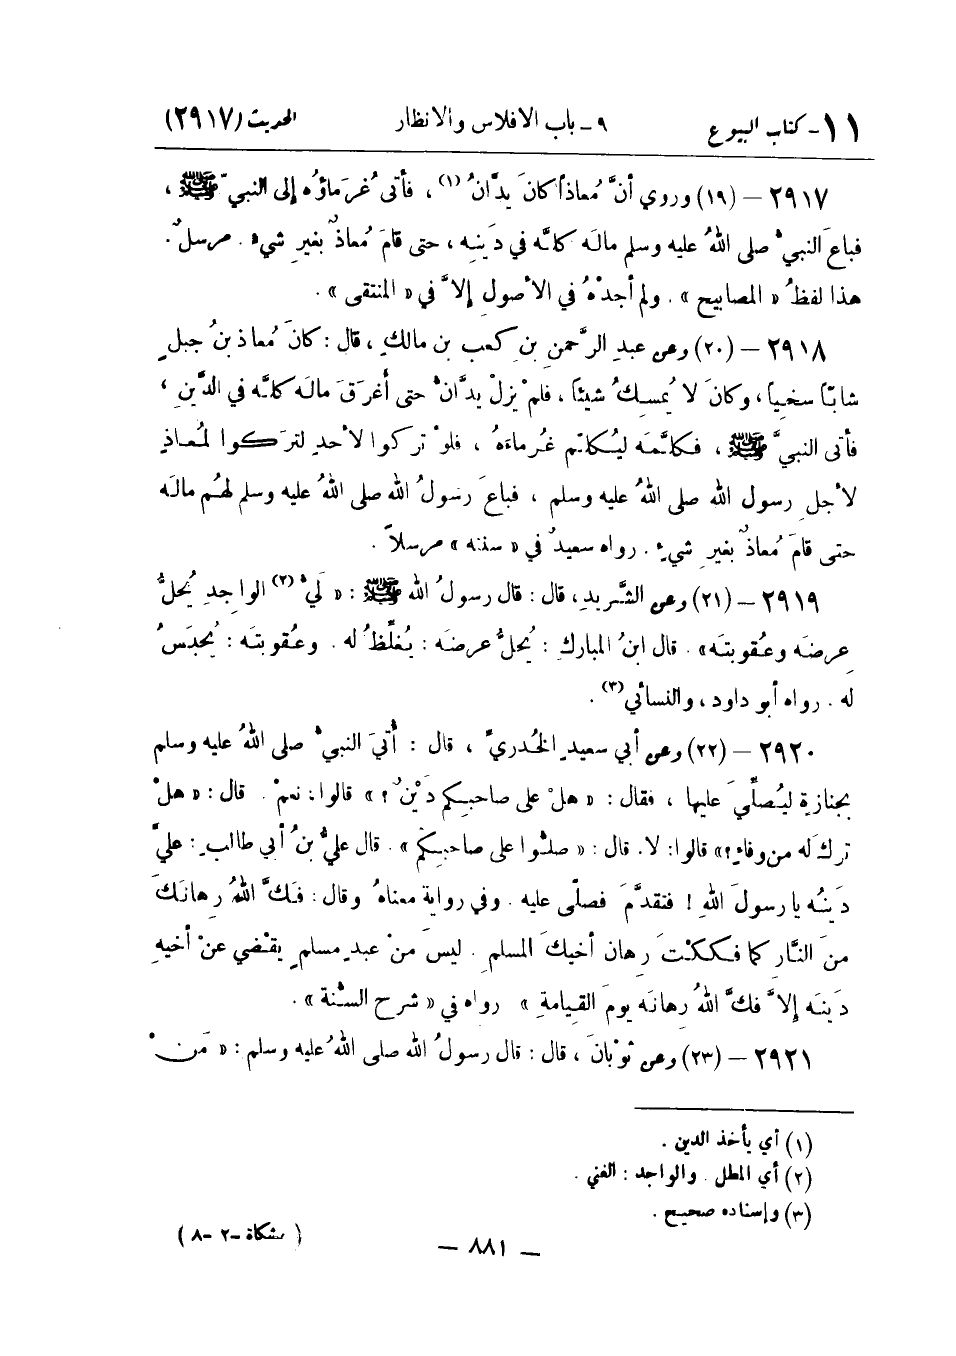 ١١ - كتاب البيوع ٩ - باب الافلاس والانظار الحديث (٢٩١٧)
٢٩١٧ - (١٩) وروي أنَّ مُعاذاً كانَ يدَّانُ (١) ، فأتى غُرَماؤُه إلى النبيّ ﷺ ،
فباعَ النبيُّ صلى اللهُ عليه وسلم مالَه كلَّه في دَينِه ، حتى قامَ مُعاذٌ بغيرِ شيءٍ . مرسلٌ .
هذا لفظُ « المصابيح » . ولم أجدْهُ في الأصولِ إلاَّ في « المنتقى » .
٢٩١٨ - (٢٠) وعن عبدِ الرَّحمنِ بنِ كعبِ بن مالكٍ ، قال : كانَ مُعاذ بنُ جبلٍ
شابّاً سخيّاً ، وكانَ لا يُمسكُ شيئاً ، فلمْ يزلْ يدَّانُ حتى أغرَقَ مالَه كلَّه في الدَّينِ ،
فأتى النبيَّ ﷺ ، فكلَّمَه ليُكلّم غُرماءَهُ ، فلوْ تركوا لأحدٍ لتركوا لمُعاذٍ
لأجلِ رسول الله صلى اللهُ عليه وسلم ، فباعَ رسولُ الله صلى اللهُ عليه وسلم لهُم مالَه
حتى قامَ مُعاذٌ بغيرِ شيءٍ . رواه سعيدٌ في « سننه » مرسلاً .
٢٩١٩ - (٢١) وعن الشَّريدِ، قال : قال رسولُ الله ﷺ : « لَيُّ (٢) الواجِدِ يُحلُّ
عِرضَه وعُقوبتَه» . قال ابنُ المباركِ : يُحلُّ عرضَه : يُغلَّظُ له . وعُقوبتَه : يُحبَسُ
له . رواه أبو داود ، والنسائي (٣) .
٢٩٢٠ - (٢٢) وعن أبي سعيدٍ الخُدريِّ ، قال : أُتيَ النبيُّ صلى اللهُ عليه وسلم
بجنازةٍ ليُصلّيَ عليها ، فقال : « هلْ على صاحبِكم دَيْنٌ ؟ » قالوا: نعمْ . قال : « هلْ
تركَ له من وفاءٍ؟» قالوا: لا. قال : « صلُّوا على صاحبِكم » . قال عليُّ بنُ أبي طالبٍ : عليَّ
دَينُه يا رسولَ اللهِ ! فتقدَّمَ فصلّى عليه . وفي روايةٍ معناهُ وقال : فَكَّ اللهُ رِهانَكَ
منَ النَّارِ كما فككْتَ رِهان أخيكَ المسلمِ . ليسَ منْ عبدٍ مسلمٍ يقْضي عنْ أخيهِ
دَينَه إلاَّ فكَّ اللهُ رِهانَه يومَ القيامةِ » رواه في « شرح السُّنة » .
٢٩٢١ - (٢٣) وعن ثوْبانَ ، قال : قال رسولُ الله صلى اللهُ عليه وسلم : « مَنْ
(١) أي يأخذ الدين .
(٢) أي المطل . والواجد : الغني .
(٣) وإسناده صحيح .
— ٨٨١ — ( مشكاة -٢ -٨ )